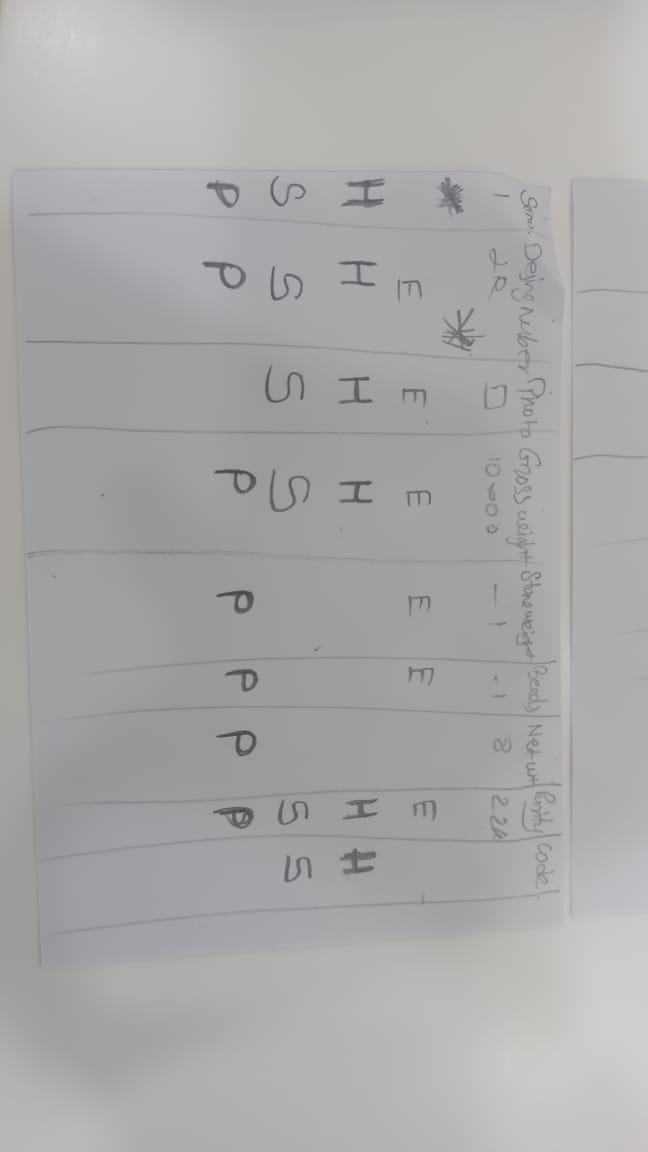 Sono. Dejing Nuber Photo Gross weight Stone weight Beeds Net wt Purity Code
1 2R 10000 - 1 - 1 8 22k
E E E E E E
H H H H H H
S S S S S S
P P P P P P P